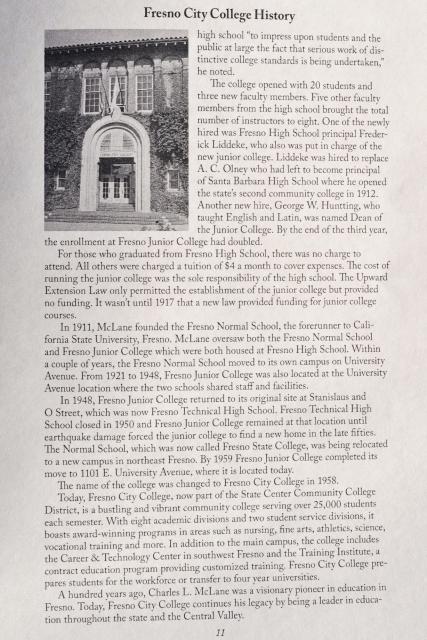 Fresno City College History
high school “to impress upon students and the
public at large the fact that serious work of dis-
tinctive college standards is being undertaken,”
he noted.
The college opened with 20 students and
three new faculty members. Five other faculty
members from the high school brought the total
number of instructors to eight. One of the newly
hired was Fresno High School principal Freder-
ick Liddeke, who also was put in charge of the
new junior college. Liddeke was hired to replace
A. C. Olney who had left to become principal
of Santa Barbara High School where he opened
the state's second community college in 1912.
Another new hire, George W. Huntting, who
taught English and Latin, was named Dean of
the Junior College. By the end of the third year,
the enrollment at Fresno Junior College had doubled.
For those who graduated from Fresno High School, there was no charge to
attend. All others were charged a tuition of $4 a month to cover expenses. The cost of
running the junior college was the sole responsibility of the high school. The Upward
Extension Law only permitted the establishment of the junior college but provided
no funding. It wasn't until 1917 that a new law provided funding for junior college
courses.
In 1911, McLane founded the Fresno Normal School, the forerunner to Cali-
fornia State University, Fresno. McLane oversaw both the Fresno Normal School
and Fresno Junior College which were both housed at Fresno High School. Within
a couple of years, the Fresno Normal School moved to its own campus on University
Avenue. From 1921 to 1948, Fresno Junior College was also located at the University
Avenue location where the two schools shared staff and facilities.
In 1948, Fresno Junior College returned to its original site at Stanislaus and
O Street, which was now Fresno Technical High School. Fresno Technical High
School closed in 1950 and Fresno Junior College remained at that location until
earthquake damage forced the junior college to find a new home in the late fifties.
The Normal School, which was now called Fresno State College, was being relocated
to a new campus in northeast Fresno. By 1959 Fresno Junior College completed its
move to 1101 E. University Avenue, where it is located today.
The name of the college was changed to Fresno City College in 1958.
Today, Fresno City College, now part of the State Center Community College
District, is a bustling and vibrant community college serving over 25,000 students
each semester. With eight academic divisions and two student service divisions, it
boasts award-winning programs in areas such as nursing, fine arts, athletics, science,
vocational training and more. In addition to the main campus, the college includes
the Career & Technology Center in southwest Fresno and the Training Institute, a
contract education program providing customized training. Fresno City College pre-
pares students for the workforce or transfer to four year universities.
A hundred years ago, Charles L. McLane was a visionary pioneer in education in
Fresno. Today, Fresno City College continues his legacy by being a leader in educa-
tion throughout the state and the Central Valley.
11